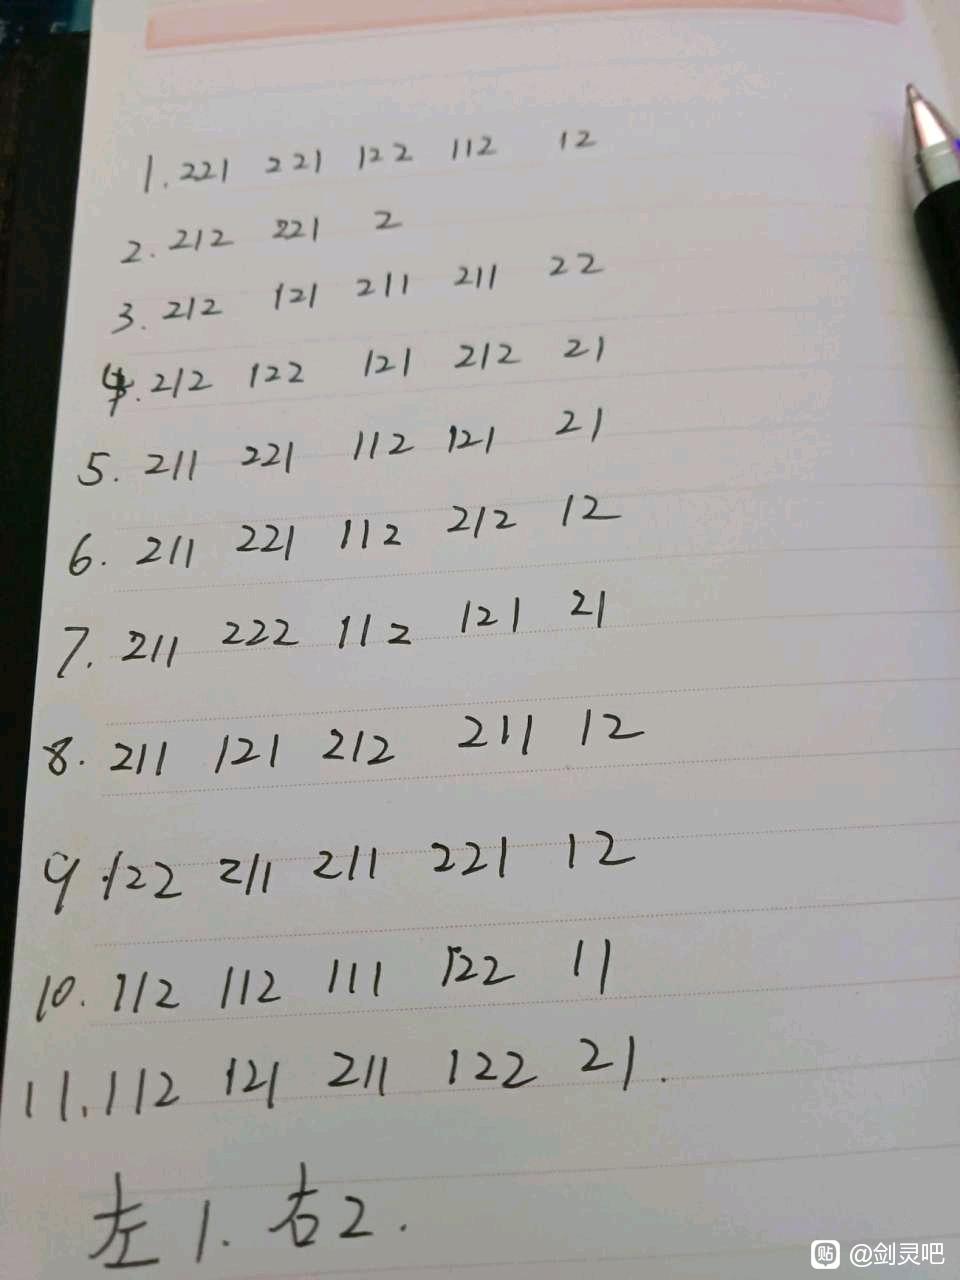 1. 221 221 122 112 12
2. 212 221 2
3. 212 121 211 211 22
4. 212 122 121 212 21
5. 211 221 112 121 21
6. 211 221 112 212 12
7. 211 222 112 121 21
8. 211 121 212 211 12
9. 122 211 211 221 12
10. 112 112 111 122 11
11. 112 121 211 122 21.
左1. 右2.
贴 @剑灵吧